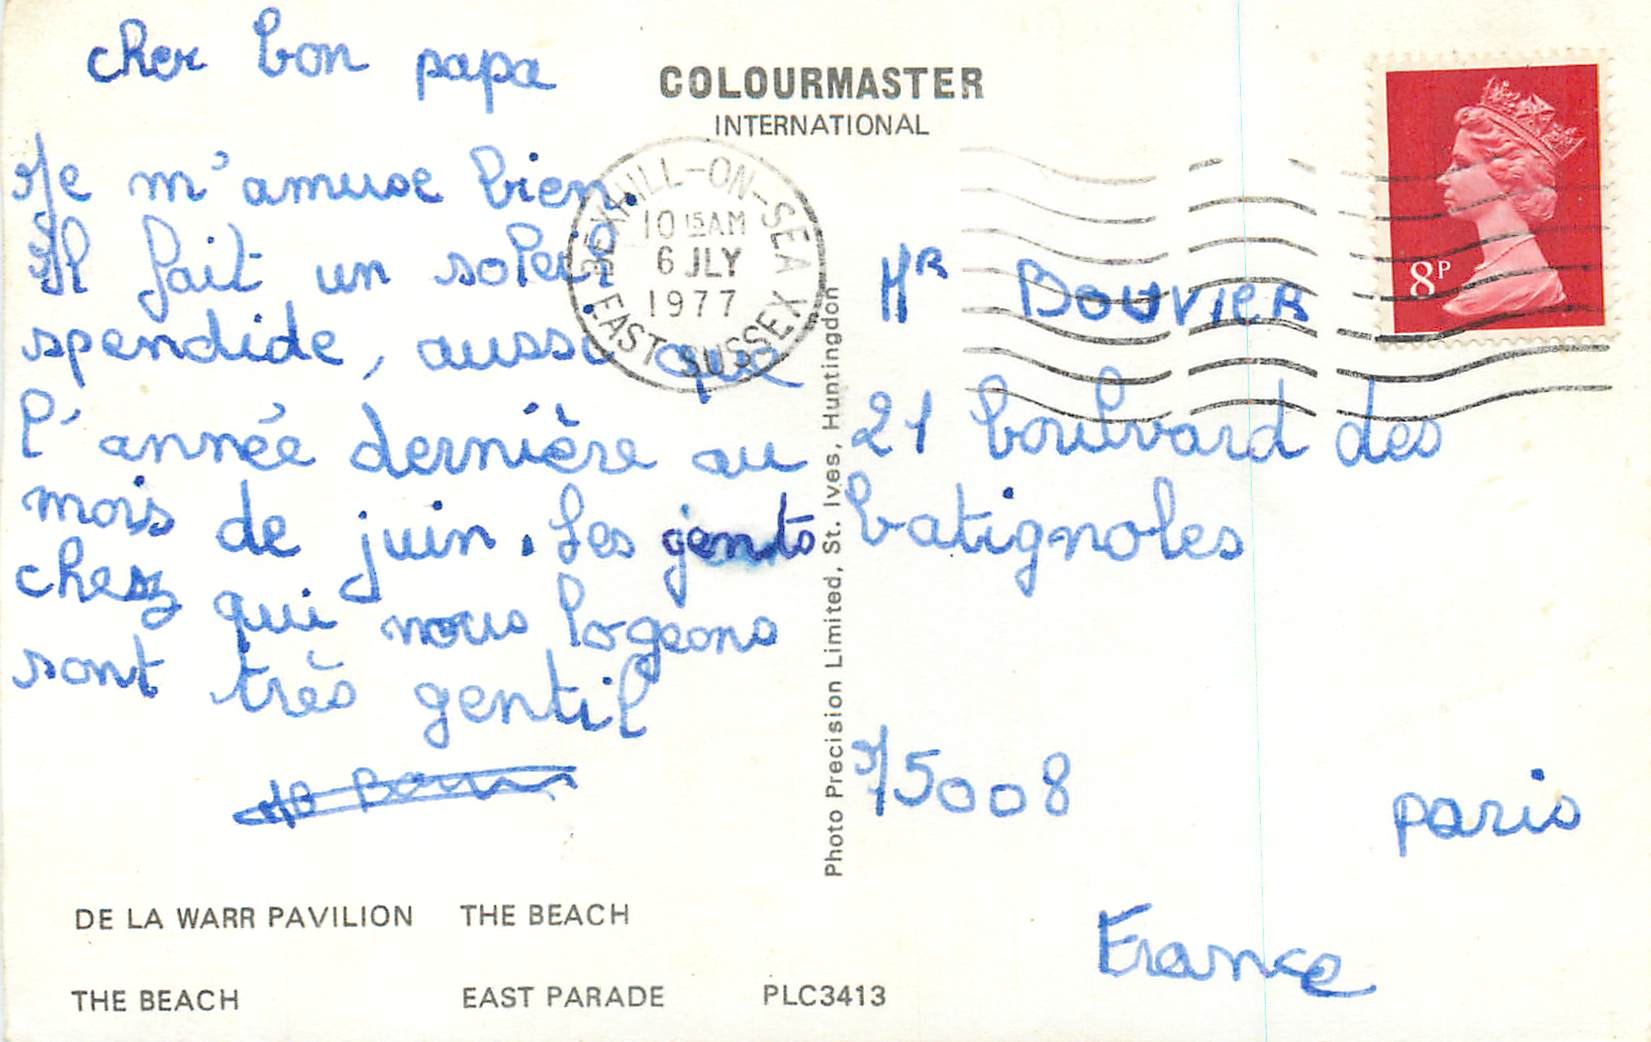 cher bon papa
Je m'amuse bien.
Il fait un soleil
spendide, aussi que
l'année dernière au
mois de juin. Les gents
chez qui nous logeons
sont très gentil
DE LA WARR PAVILION THE BEACH
THE BEACH EAST PARADE PLC3413
COLOURMASTER
INTERNATIONAL
BEXHILL-ON-SEA
10 15AM
6 JLY
1977
EAST SUSSEX
Photo Precision Limited, St. Ives, Huntingdon
8P
MR BOUVIER
21 boulvard des
batignoles
75008 paris
France